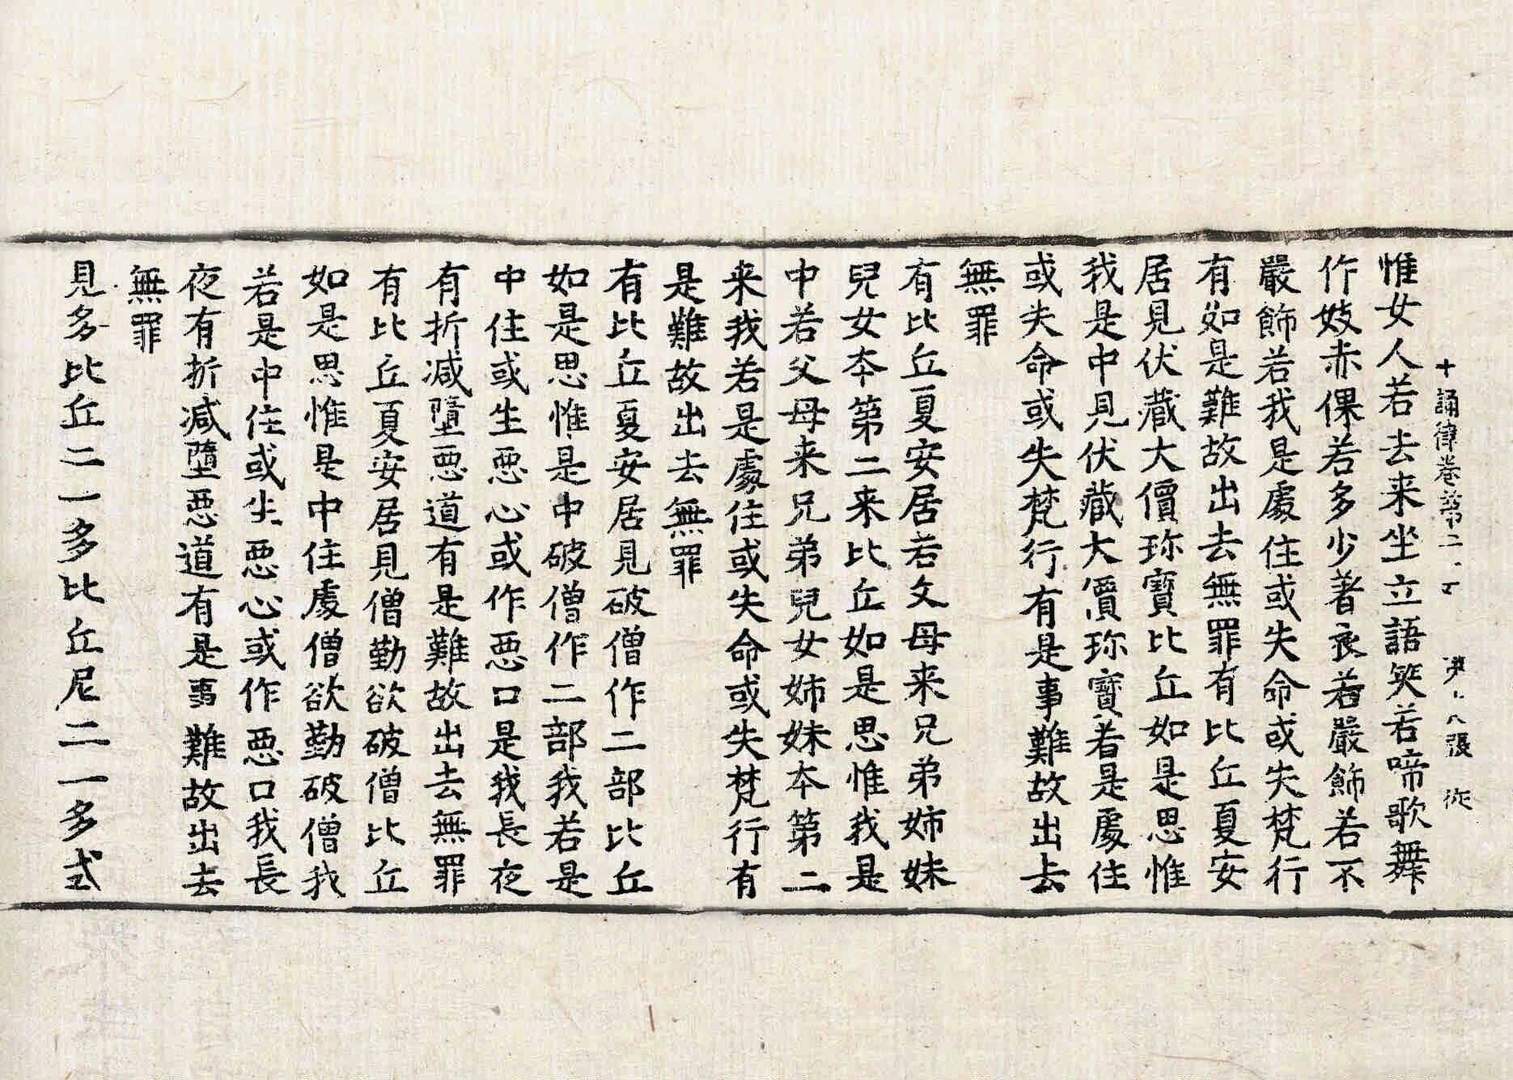 十誦律卷第二十五 第十八張 従
惟女人若去来坐立語笑若啼歌舞
作妓赤倮若多少著衣若嚴飾若不
嚴飾若我是處住或失命或失梵行
有如是難故出去無罪有比丘夏安
居見伏藏大價珎寶比丘如是思惟
我是中見伏藏大價珎寶若是處住
或失命或失梵行有是事難故出去
無罪
有比丘夏安居若父母来兄弟姉妹
兒女本第二来比丘如是思惟我是
中若父母来兄弟兒女姉妹本第二
来我若是處住或失命或失梵行有
是難故出去無罪
有比丘夏安居見破僧作二部比丘
如是思惟是中破僧作二部我若是
中住或生惡心或作惡口是我長夜
有折減墮惡道有是難故出去無罪
有比丘夏安居見僧勤欲破僧比丘
如是思惟是中住處僧欲勤破僧我
若是中住或生惡心或作惡口我長
夜有折減墮惡道有是事難故出去
無罪
見多比丘二一多比丘尼二一多式